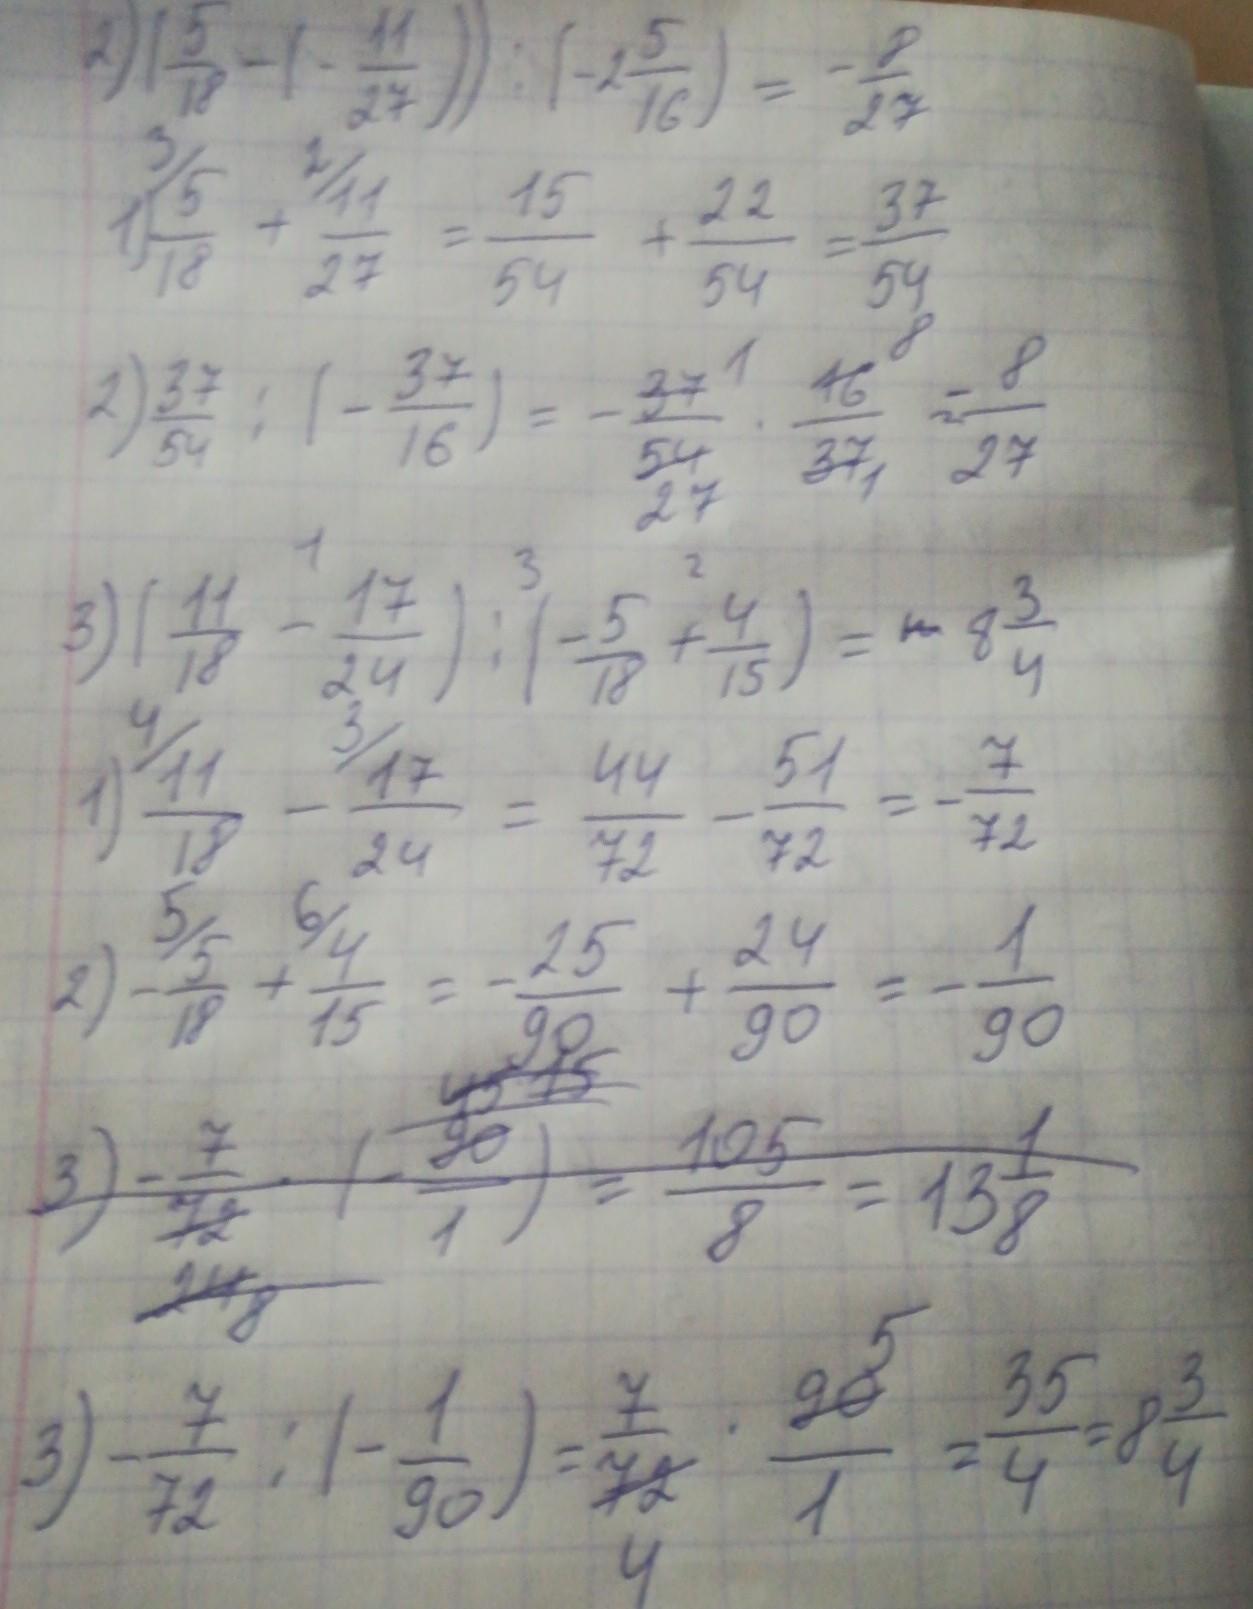 2) (5/18 - (- 11/27)) : (-2 5/16) = - 8/27
1) 3/ 5/18 + 2/ 11/27 = 15/54 + 22/54 = 37/54
2) 37/54 : (- 37/16) = - 37 1/54 27 · 16 8/37 1 = - 8/27
3) (11/18 - 1 17/24) : 3 (- 5/18 + 2 4/15) = - 8 3/4
1) 4/ 11/18 - 3/ 17/24 = 44/72 - 51/72 = - 7/72
2) - 5/ 5/18 + 6/ 4/15 = - 25/90 + 24/90 = - 1/90
3) - 7/72 24 8 · (- 45 15 90/1) = 105/8 = 13 1/8
3) - 7/72 : (- 1/90) = 7/72 4 · 90 5/1 = 35/4 = 8 3/4